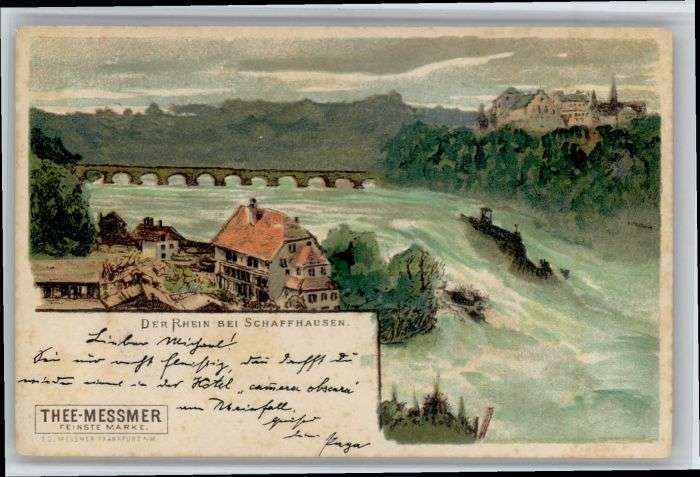 DER RHEIN BEI SCHAFFHAUSEN.
Lieber Michael!
Sei nur recht fleissig, dan darfst Du
wieder einmal in der Hotel „camera obscura"
am Rheinfall.
THEE-MESSMER
FEINSTE MARKE.
ED. MESSMER FRANKFURT A/M.